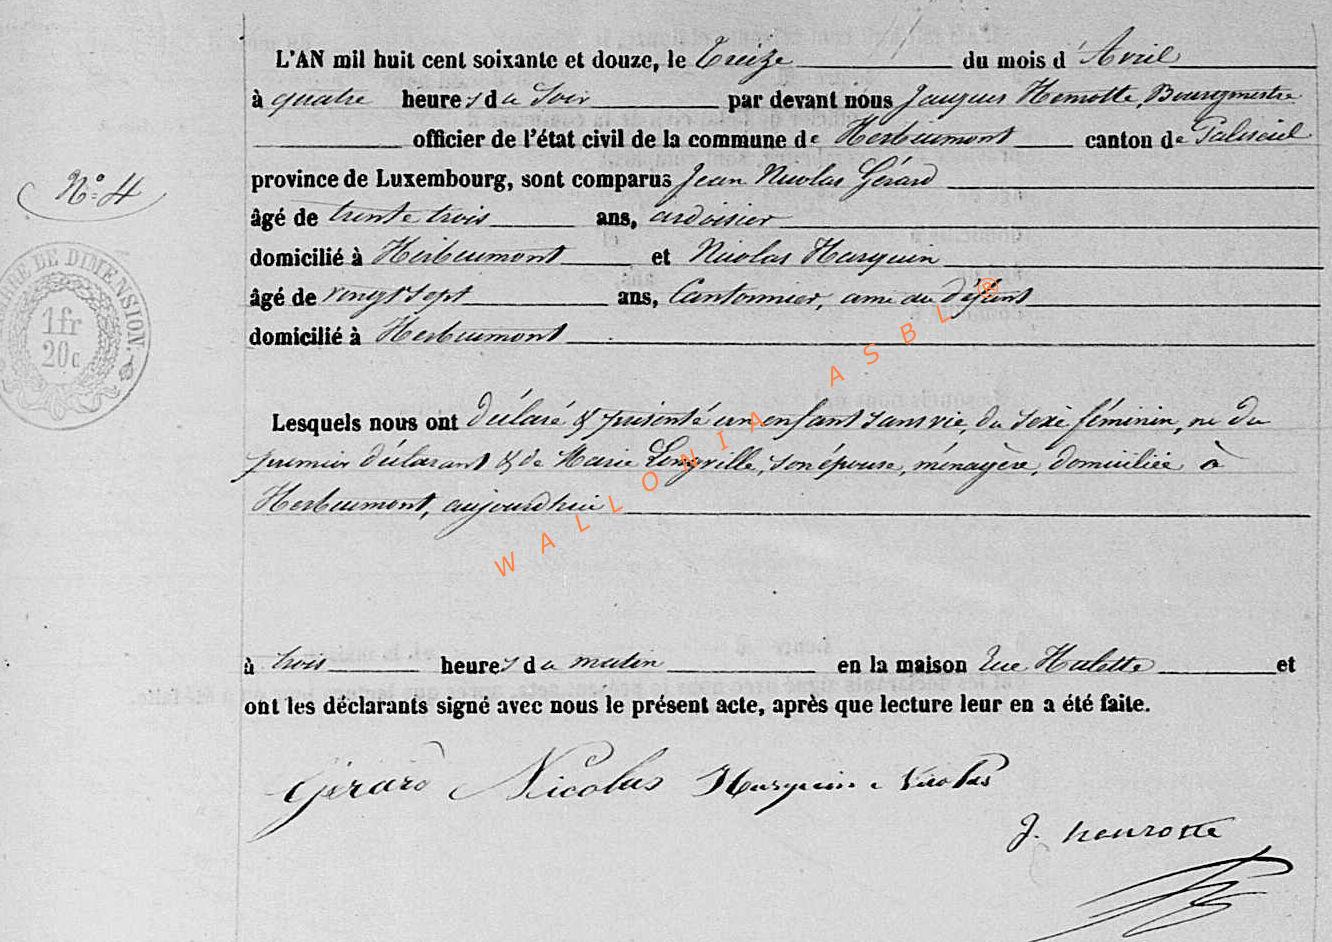 L'AN mil huit cent soixante et douze, le treize du mois d'Avril
à quatre heures du soir par devant nous Jacques Henrotte, Bourgmestre
officier de l'état civil de la commune de Herbeumont canton de Paliseul
N° 4
province de Luxembourg, sont comparus Jean Nicolas Gérard
âgé de trente trois ans, ardoisier
domicilié à Herbeumont et Nicolas Harquin
âgé de vingt sept ans, Cantonnier, ami du défunt
domicilié à Herbeumont
DE DIMENSION
1fr
20c
Lesquels nous ont déclaré & présenté un enfant sans vie, du sexe féminin, né du
premier déclarant & de Marie Longville, son épouse, ménagère, domiciliée à
Herbeumont, aujourd'hui
WALLONIA ASBL ®
à trois heures du matin en la maison rue Hulette et
ont les déclarants signé avec nous le présent acte, après que lecture leur en a été faite.
Gérard Nicolas Harquin Nicolas
J. henrotte